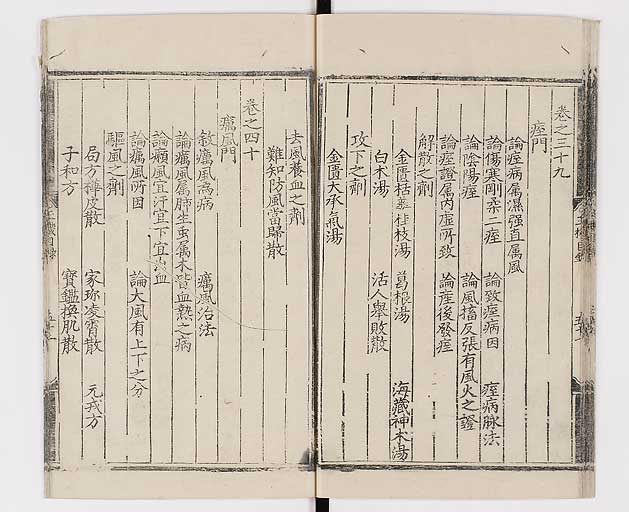 卷之三十九
痙門
論痙病属濕强直属風
論傷寒剛柔二痙　論致痙病因　痙病脉法
論陰陽痙　論風搐反張有風火之證
論痙證属内虛所致　論産後發痙
解散之劑
金匱栝蔞桂枝湯　葛根湯　海藏神朮湯
白朮湯　活人舉敗散
攻下之劑
金匱大承氣湯
去風養血之劑
難知防風當歸散
卷之四十
癘風門
敘癘風為病　癘風治法
論癘風属肺生虫属木皆血熱之病
論癩風宜汗宜下宜出血
論癘風所因　論大風有上下之分
驅風之劑
局方樺皮散　家珍凌霄散　元戎方
子和方　寶鑑換肌散